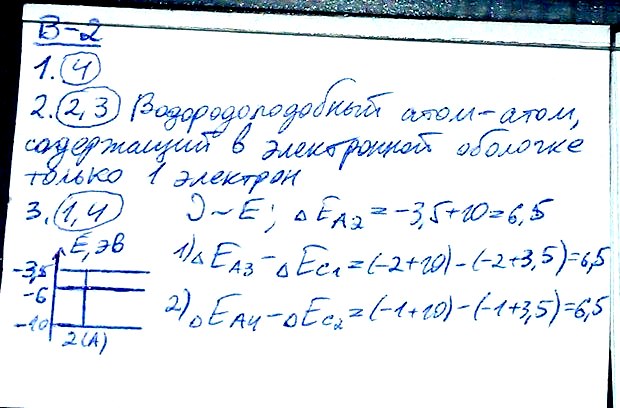 В-2
1. 4
2. 2,3 Водородоподобный атом-атом,
содержащий в электронной оболочке
только 1 электрон
3. 1,4 ν ~ E; ΔE_A2 = -3,5+10=6,5
E, эВ
1) ΔE_A3 - ΔE_C1 = (-2+10)-(-2+3,5)=6,5
-3,5
-6
2) ΔE_A4 - ΔE_C2 = (-1+10)-(-1+3,5)=6,5
-10
2(A)